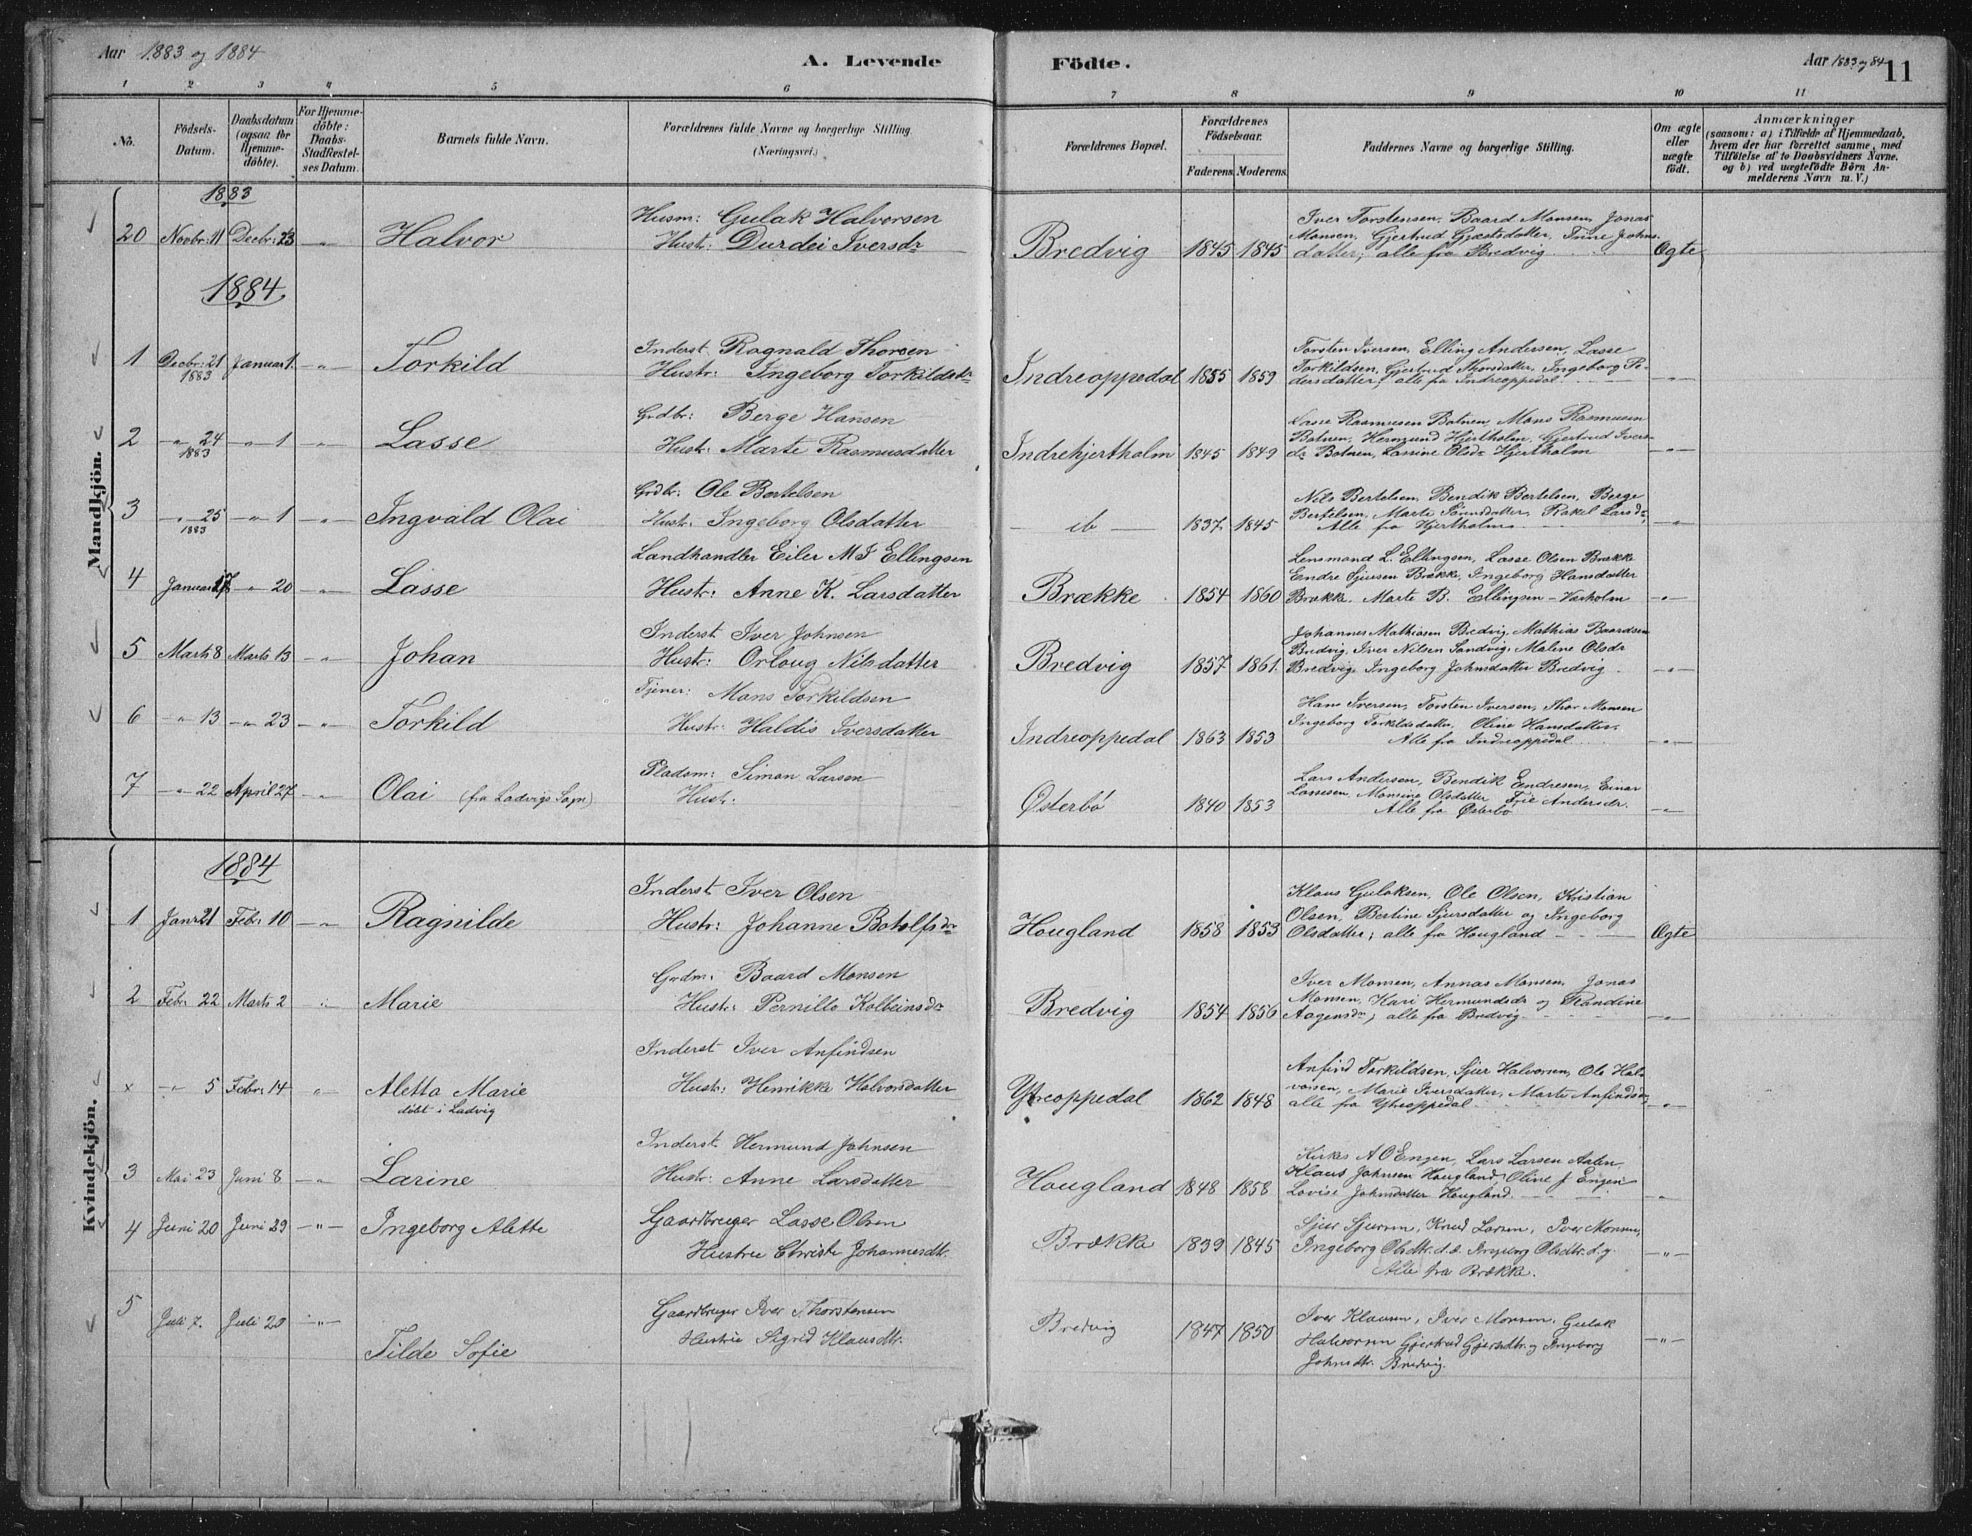 Aar 1883 og 1884
A. Levende Födte.
Aar 1883 og 84
11
1 2 3 4 5 6 7 8 9 10 11
No.
Födsels-Datum.
Daabsdatum (ogsaa for Hjemme-döbte).
For Hjemme-döbte: Daabs-Stadfæstel-ses Datum.
Barnets fulde Navn.
Forældrenes fulde Navne og borgerlige Stilling.
(Næringsvei.)
Forældrenes Bopæl.
Forældrenes Födselsaar.
Faderens Moderens
Faddernes Navne og borgerlige Stilling.
Om ægte eller uægte födt.
Anmærkninger
(saasom: a) i Tilfælde af Hjemmedaab,
hvem der har forrettet samme, med
Tilföielse af to Daabsvidners Navne.
og b) ved uægtefödte Börn An-
melderens Navn m. V.)
Mandkjön.
1883
20 Novbr: 11 Decbr: 23 -"- Halvor
Husm: Gulak Halvorsen
Hustr: Durdei Iversdr
Bredvig 1845 1845
Iver Torstensen, Baard Monsen, Jonas
Monsen, Gjertrud Gjæstsdatter, Trine Johns-
datter; alle fra Bredvig
Ægte
1884
1 Decbr: 21 1883 Januar 1. -"- Torkild
Inderst Ragnald Thorsen
Hustr: Ingeborg Torkildsdr
Indreoppedal 1855 1859
Torsten Iversen, Elling Andersen, Lasse
Torkildsen, Gjertrud Thorsdatter, Ingeborg Pe-
dersdatter; alle fra Indreoppedal
-"-
2 -"- 24 1883 -"- 1 -"- Lasse
Grdbr: Berge Hansen
Hustr: Marte Rasmusdatter
Indrehjertholm 1845 1849
Lasse Rasmusen Botnen, Mons Rasmusen
Botnen, Hermund Hjertholm, Gjertrud Ivers-
dr Botnen, Larsine Olsdr Hjertholm
-"-
3 -"- 25 1883 -"- 1 -"- Ingvald Olai
Grdbr: Ole Bertelsen
Hustr: Ingeborg Olsdatter
ib 1837 1845
Nils Bertelsen, Bendik Bertelsen, Berge
Bertelsen, Marte Sørensdatter, Rakel Larsdr,
Alle fra Hjertholm
-"-
4 Januar 17 -"- 20 -"- Lasse
Landhandler Eiler M J Ellingsen
Hustr: Anne K. Larsdatter
Brække 1854 1860
Lensmand L. Ellingsen, Lasse Olsen Brække
Endre Sjursen Brække, Ingeborg Hansdatter
Brække, Marte B. Ellingsen - Varholm
-"-
5 Marts 8 Marts 13 -"- Johan
Inderst Iver Johnsen
Hustr: Orloug Nilsdatter
Bredvig 1857 1861.
Johannes Mathiasen Bredvig, Mathias Baardsen
Bredvig, Iver Nilsen Sandvig, Maline Olsdr
Bredvig, Ingeborg Johnsdatter Bredvig
-"-
6 -"- 13 -"- 23 -"- Torkild
Tjener: Mons Torkildsen
Hustr: Haldis Iversdatter
Indreoppedal 1863 1853
Hans Iversen, Torsten Iversen, Thor Monsen
Ingeborg Torkildsdatter, Oline Hansdatter,
Alle fra Indreoppedal
-"-
7 -"- 22 April 27 -"- Olai (fra Ladvigs Sogn)
Pladsm: Simon Larsen
Hustr:
Østerbö 1840 1853
Lars Andersen, Bendik Eendresen, Einar
Lassesen, Monsine Olsdatter, Andersdr.
Alle fra Østerbö
-"-
Kvindekjön.
1884
1 Janr 21 Febr: 10 -"- Ragnilde
Inderst Iver Olsen
Hustr: Johanne Botolfsdr
Hougland 1858 1853
Klaus Gulaksen, Ole Olsen, Kristian
Olsen, Bertine Sjursdatter og Ingeborg
Olsdatter; alle fra Hougland
Ægte
2 Febr: 22 Marts 2 Marie
Grdm: Baard Monsen
Hustr: Pernille Kolbeinsdr
Bredvig 1854 1856
Iver Monsen, Annas Monsen, Jonas
Monsen, Kari Hermundsdr og Randine
Aagensdr, alle fra Bredvig
-"-
x -"- 5 Febr: 14 " Aletta Marie
döbt i Ladvig
Inderst Iver Anfindsen
Hustr: Henrikke Halvorsdatter
Ytreoppedal 1862 1848
Anfind Torkildsen, Sjur Halvorsen, Ole Hal-
vorsen, Marie Iversdatter, Marte Anfindsdr,
alle fra Ytreoppedal
-"-
3 Mai 23 Juni 8 -"- Larine
Inderst Hermund Johnsen
Hustr: Anne Larsdatter
Hougland 1848 1858
Kirks A O Engen, Lars Larsen Aalen,
Klaus Johnsen Hougland, Oline J Engen
Lovise Johnsdatter Hougland
"
4 Juni 20 Juni 29 -"- Ingeborg Alette
Gaardbruger Lasse Olsen
Hustru Christi Johannesdtr.
Brække 1839 1845
Sjur Sjursen, Knud Larsen, Iver Monsen,
Ingeborg Olsdtr. d. æ. Ingeborg Olsdtr. d. y.
Alle fra Brække.
-"-
5 Juli 7. Juli 20 -"- Tilde Sofie
Gaardbruger Iver Thorstensen
Hustru Sigrid Klausdtr.
Bredvig 1847 1850
Iver Klausen, Iver Monsen, Gulak
Halvorsen Gjertrud Gjertsdtr. og Ingeborg
Johnsdtr. Bredvig.
-"-